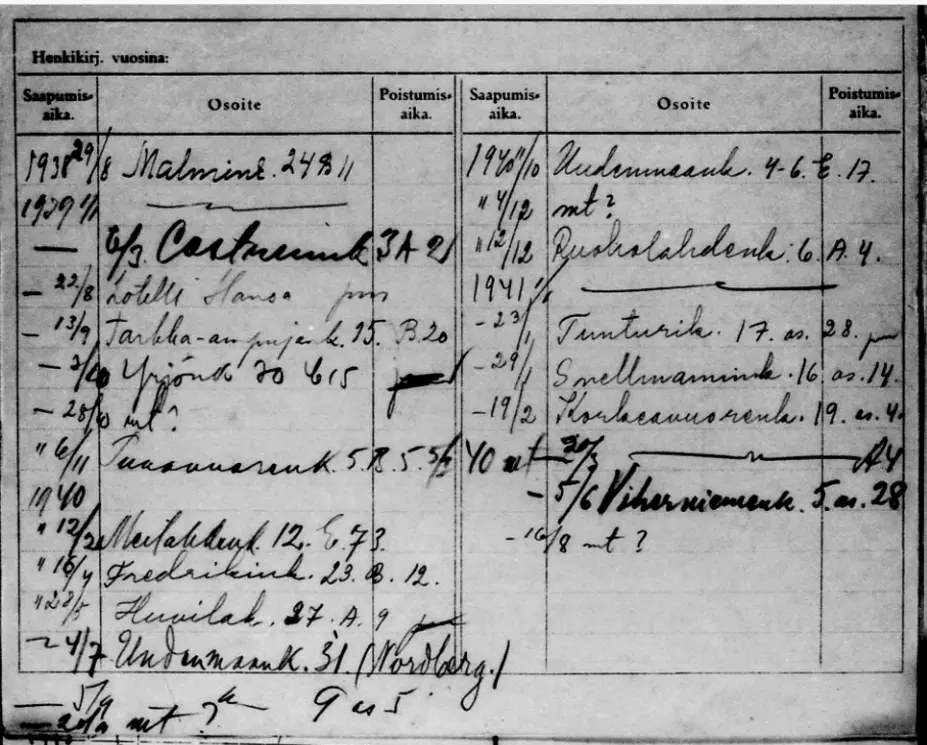 Henkikirj. vuosina:
Saapumis-aika. Osoite Poistumis-aika.
1938 29/8 Malmink. 24 B 11
1939 1/1
— 6/3. Castreenink 3 A 21
— 22/8 hotelli Hansa
— 13/9 Tarkka-ampujank. 15. B. 20
— 2/10 Yrjönk 30 C 15
— 28/10 mt?
" 6/11 5. B. 5. 5/2 40 mt
1940
" 12/2 Meilahdenk. 12. E. 73.
" 16/4 Fredrikink. 23. B. 12.
" 28/5 Huvilak. 27. A. 9
— 4/7 Uudenmaank. 31. (Nordberg.)
— 5/9 9 as 5
— mt ?
Saapumis-aika. Osoite Poistumis-aika.
1940 11/10 Uudenmaank. 4-6. E. 17.
" 4/12 mt?
" 12/12 Ruoholahdenk. 6. A. 4.
1941 1/1
- 23/1 Tunturik. 17. as. 28.
- 29/1 Snellmanink. 16 as. 14.
- 19/2 Korkeavuorenk. 19. as. 4.
20/3 A4
- 5/6 Viherniemenk. 5. as. 28
- 16/8 mt ?